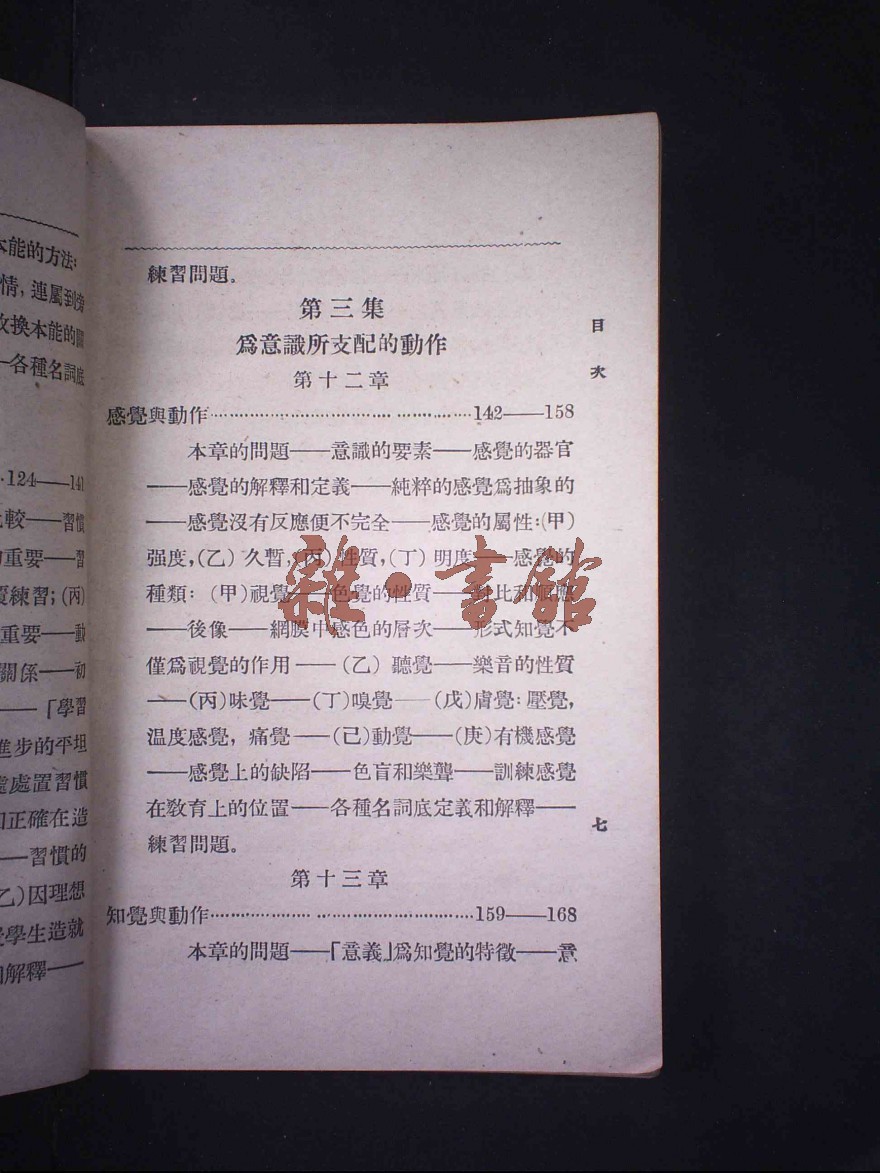 本能的方法:
情, 連屬到旁
改換本能的關
—各種名詞底
124——141
比較——習慣
的重要——習
覆練習; (丙)
重要——動
關係——初
——「學習
進步的平坦
處置習慣
和正確在造
——習慣的
乙)因理想
學生造就
和解釋——
練習問題。
第三集
爲意識所支配的動作
第十二章
感覺與動作……142——158
本章的問題——意識的要素——感覺的器官
——感覺的解釋和定義——純粹的感覺爲抽象的
——感覺沒有反應便不完全——感覺的屬性:(甲)
强度,(乙)久暫,(丙)性質,(丁)明度——感覺的
種類: (甲)視覺——色覺的性質——對比和順應
——後像——網膜中感色的層次——形式知覺不
僅爲視覺的作用——(乙)聽覺——樂音的性質
——(丙)味覺——(丁)嗅覺——(戊)膚覺: 壓覺,
温度感覺, 痛覺——(己)動覺——(庚)有機感覺
——感覺上的缺陷——色盲和樂聾——訓練感覺
在教育上的位置——各種名詞底定義和解釋——
練習問題。
第十三章
知覺與動作……159——168
本章的問題——「意義」爲知覺的特徵——意
目次
七
雜·書館